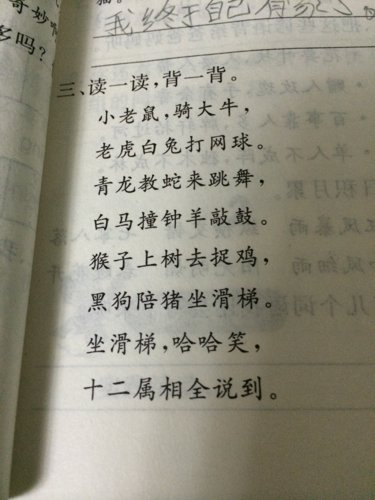 奇妙
多吗？
我终于自己有家了。
三、读一读，背一背。
小老鼠，骑大牛，
老虎白兔打网球。
青龙教蛇来跳舞，
白马撞钟羊敲鼓。
猴子上树去捉鸡，
黑狗陪猪坐滑梯。
坐滑梯，哈哈笑，
十二属相全说到。